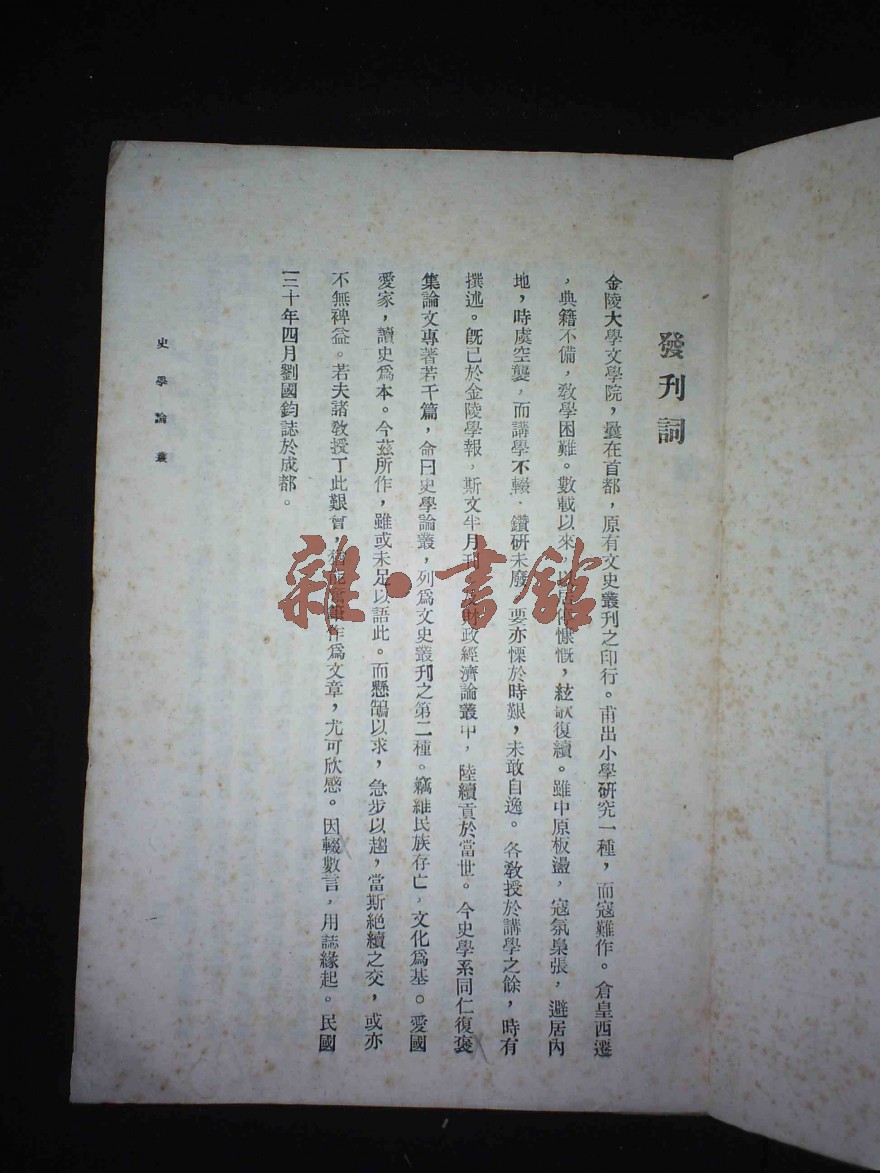 發刊詞
金陵大學文學院，曩在首都，原有文史叢刊之印行。甫出小學研究一種，而寇難作。倉皇西遷
，典籍不備，敎學困難。數載以來，以居慷慨，絃歌復續。雖中原板盪，寇氛梟張，避居內
地，時虞空襲，而講學不輟，鑽研未廢，要亦慄於時艱，未敢自逸。各敎授於講學之餘，時有
撰述。旣已於金陵學報，斯文半月刊，財政經濟論叢中，陸續貢於當世。今史學系同仁復裒
集論文專著若干篇，命曰史學論叢，列爲文史叢刊之第二種。竊維民族存亡，文化爲基。愛國
愛家，讀史爲本。今茲所作，雖或未足以語此。而懸鵠以求，急步以趨，當斯絕續之交，或亦
不無裨益。若夫諸敎授丁此艱會，作爲文章，尤可欣感。因輟數言，用誌緣起。民國
三十年四月劉國鈞誌於成都。
史學論叢
雜·書館